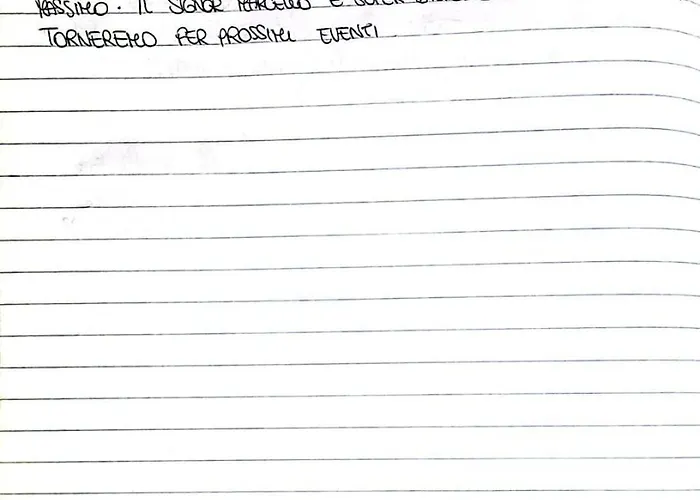 MASSIMO. IL SIGNOR MARCELLO E
TORNEREMO PER PROSSIMI EVENTI